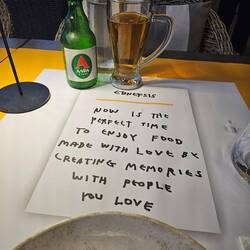 ΑΛΦΑ
EDNOPSIS
NOW IS THE
PERFECT TIME
TO ENJOY FOOD
MADE WITH LOVE BY
CREATING MEMORIES
WITH PEOPLE
YOU LOVE